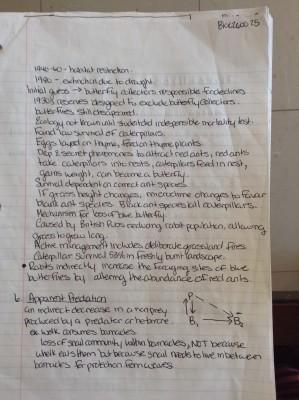 BIOC60 075
1940-60 - habitat restriction.
1980 - extinction due to drought.
Initial guess → butterfly collectors responsible for declines
1930's reserves designed to exclude butterfly collectors.
butterflies still disappeared.
Ecology not known until student did independent mortality test.
Found low survival of caterpillars.
Eggs layed on thyme, feed on thyme plants.
Drop & secret pheromones to attract red ants, red ants
take caterpillars into nests, caterpillars feed in nest,
gains weight, can become a butterfly.
Survival dependent on correct ant species.
If grass height changes, microclime changes to favour
black ant species. Black ant species kill caterpillars.
Mechanism for loss of blue butterfly.
Caused by British Pubs reducing rabbit population, allowing
grass to grow long.
Active management includes deliberate grassland fires.
Caterpillar survival 50% in freshly burnt landscape.
• Rabbits indirectly increase the foraging sites of blue
butterflies by altering the abundance of red ants.
6. Apparent Predation
an indirect decrease in a nonprey
produced by a predator or herbivore.
ex. whelk consumes barnacles.
loss of snail community within barnacles, NOT because
whelk eats them but because snail needs to live in between
barnacles for protection from waves.
P
B₁ → B₂